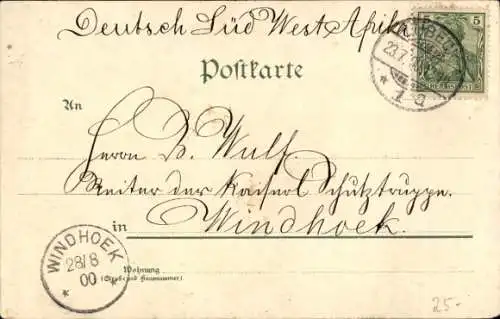 Deutsch Süd West Afrika
5
23.7.
* 1 a
Postkarte
An
Herrn B. Wulf.
Reiter der Kaiserl Schutztruppe.
in Windhoek.
WINDHOEK
28/8
00
* *
Wohnung
(Straße und Hausnummer)
25.-